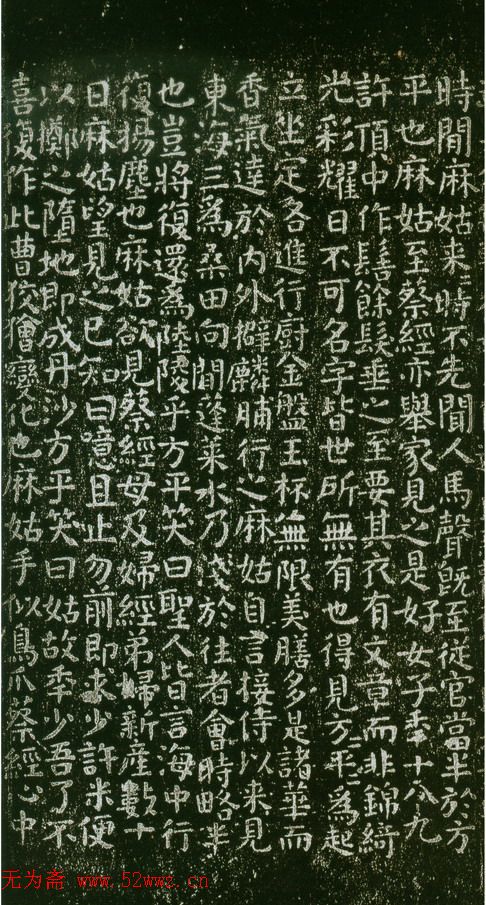 時間麻姑來〻時不先聞人馬聲既至從官當半於方
平也麻姑至蔡經亦舉家見之是好女子年十八九
許頂中作髻餘髮垂之至要其衣有文章而非錦綺
光彩耀日不可名字皆世所無有也得見方平〻爲起
立坐定各進行廚金盤玉杯無限美膳多是諸華而
香氣達於內外擗麟脯行之麻姑自言接侍以來見
東海三爲桑田向間蓬萊水乃淺於往者會時略半
也豈將復還爲陸陵乎方平笑曰聖人皆言海中行
復揚塵也麻姑欲見蔡經母及婦經弟婦新產數十
日麻姑望見之已知曰噫且止勿前即求少許米便
以擲之墮地即成丹沙方平笑曰姑故年少吾了不
喜復作此曹狡獪變化也麻姑手似鳥爪蔡經心中
无为斋 www.52wwz.cn